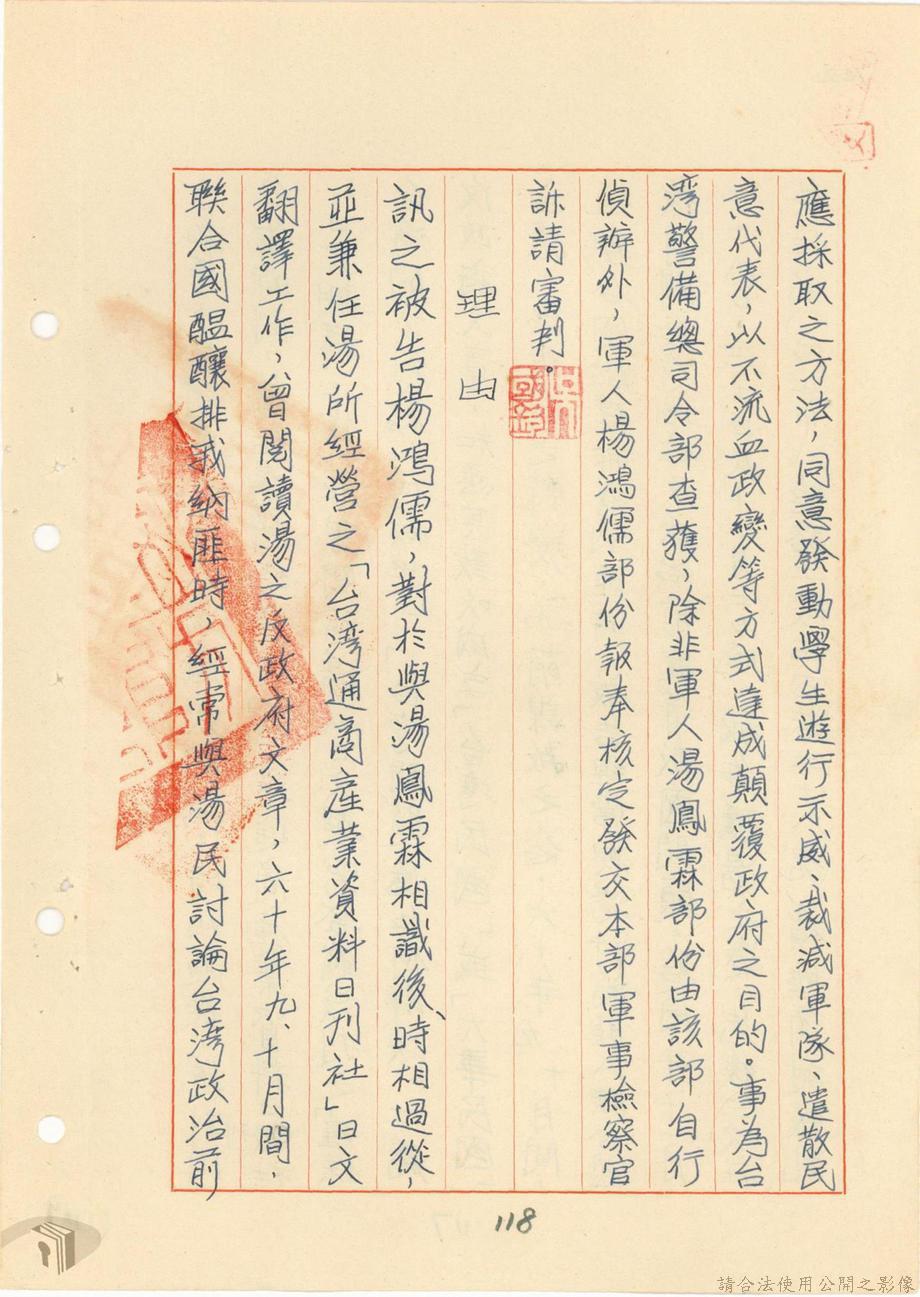 應採取之方法，同意發動學生遊行示威、裁減軍隊、遣散民
意代表，以不流血政變等方式達成顛覆政府之目的。事為台
湾警備總司令部查獲，除非軍人湯鳳霖部份由該部自行
偵辦外，軍人楊鴻儒部份報奉核定發交本部軍事檢察官
訴請審判。
理由
訊之被告楊鴻儒，對於與湯鳳霖相識後、時相過從，
並兼任湯所經營之「台湾通商產業資料日刊社」日文
翻譯工作，曾閱讀湯之反政府文章，六十年九、十月間，
聯合國醞釀排我納匪時，經常與湯民討論台湾政治前
118
請合法使用公開之影像